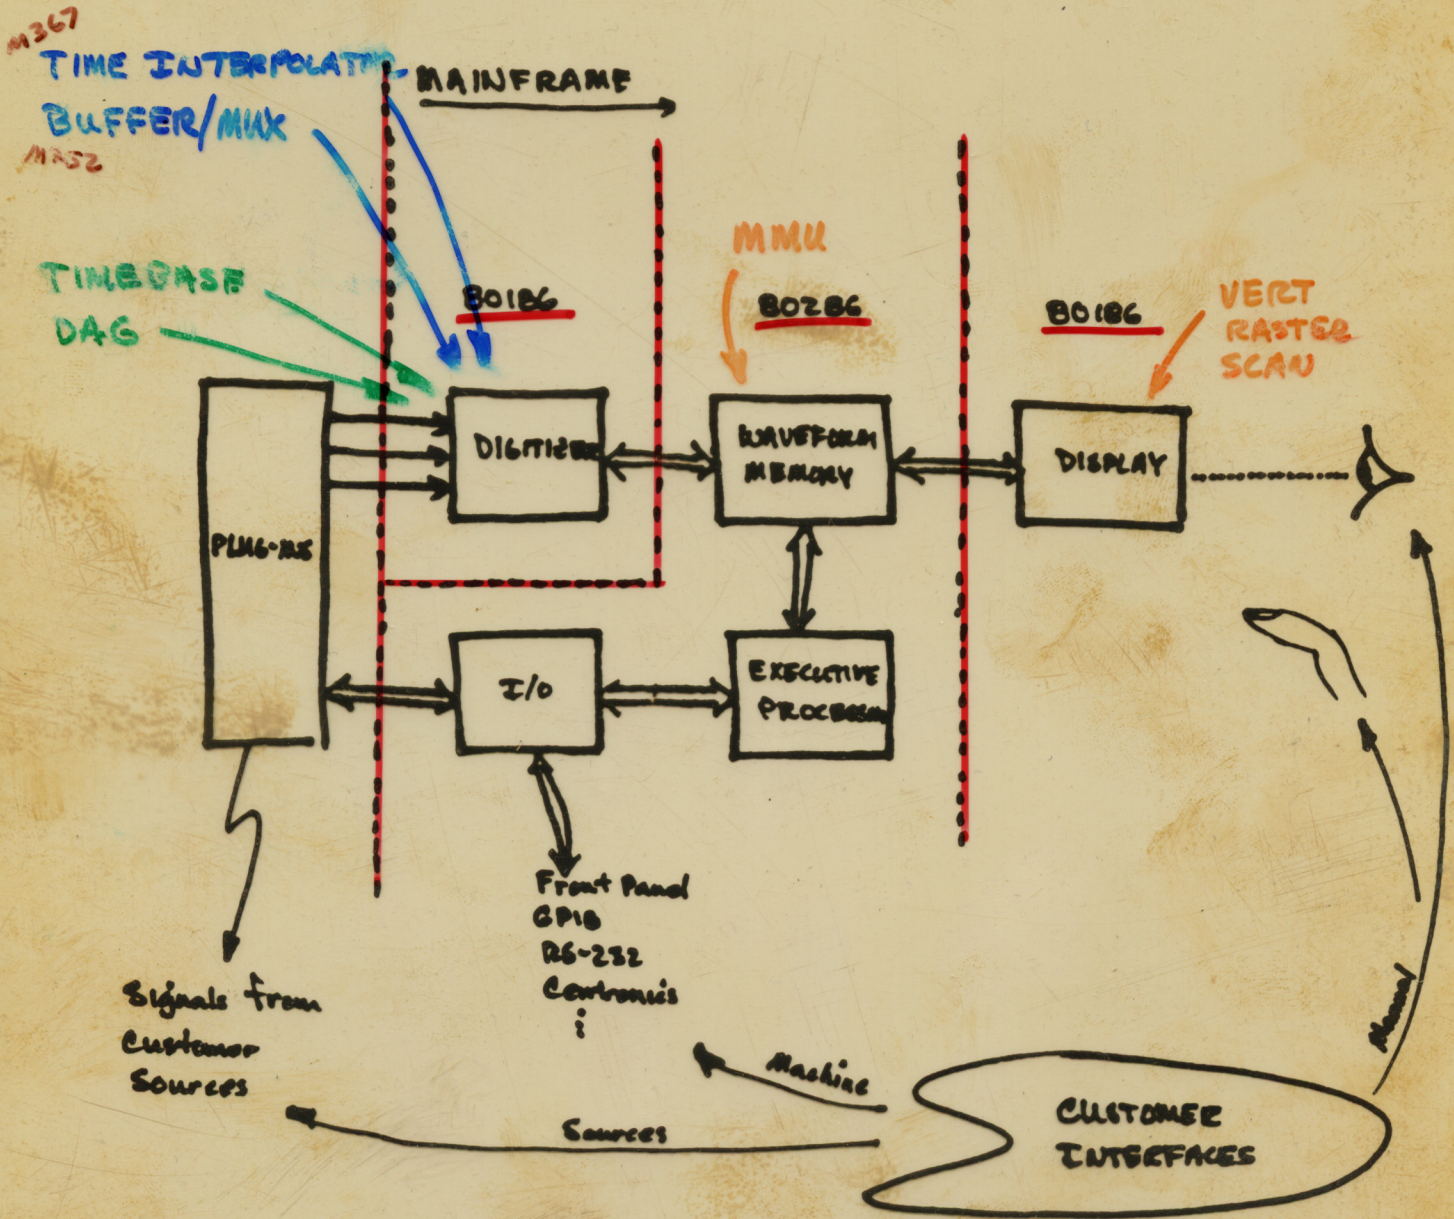 M367
TIME INTERPOLATOR
BUFFER/MUX
M252
MAINFRAME
TIMEBASE
DAG
80186
MMU
80286
80186
VERT
RASTER
SCAN
PLUG-INS
DIGITIZER
WAVEFORM
MEMORY
DISPLAY
I/O
EXECUTIVE
PROCESSOR
Front Panel
GPIB
RS-232
Centronics
Signals from
Customer
Sources
Machine
Sources
Manual
CUSTOMER
INTERFACES